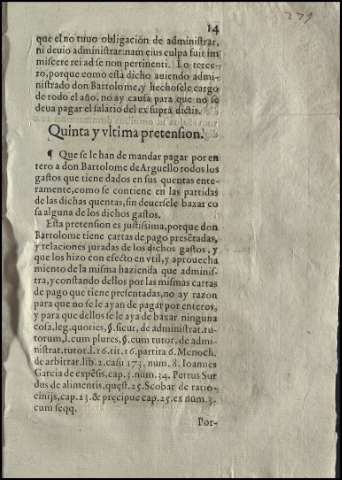 14
279
que el no tuuo obligacion de administrar,
ni deuio administrar: nam eius culpa fuit im
miscere rei ad se non pertinenti. Lo terce-
ro, porque como està dicho auiendo admi-
nistrado don Bartolome, y hechosele cargo
de todo el año, no ay causa para que no se
deua pagar el salario del ex suprà dictis.
Quinta y vltima pretension.
¶ Que se le han de mandar pagar por en
tero a don Bartolome de Arguello todos los
gastos que tiene dados en sus quentas ente-
ramente, como se contiene en las partidas
de las dichas quentas, sin deuersele baxar co
sa alguna de los dichos gastos.
Esta pretension es justissima, porque don
Bartolome tiene cartas de pago presẽtadas,
y relaciones juradas de los dichos gastos, y
que los hizo con efecto en vtil, y aprouecha
miento de la misma hazienda que adminis-
tra, y constando dellos por las mismas cartas
de pago que tiene presentadas, no ay razon
para que no se le ayan de pagar por enteros,
y para que dellos se le aya de baxar ninguna
cosa, leg. quoties, §. sicut, de administrat. tu-
torum, l. cum plures, §. cum tutor, de admi-
nistrat. tutor. l. 16. tit. 16. partita 6. Menoch.
de arbitrar. lib. 2. casu 173. num. 8. Ioannes
Garcia de expẽsis, cap. 3. num. 34. Petrus Sur
dus de alimentis, quęst. 25. Scobar de ratio-
cinijs, cap. 23. & pręcipue cap. 25. ex num. 3.
cum seqq.
Por-